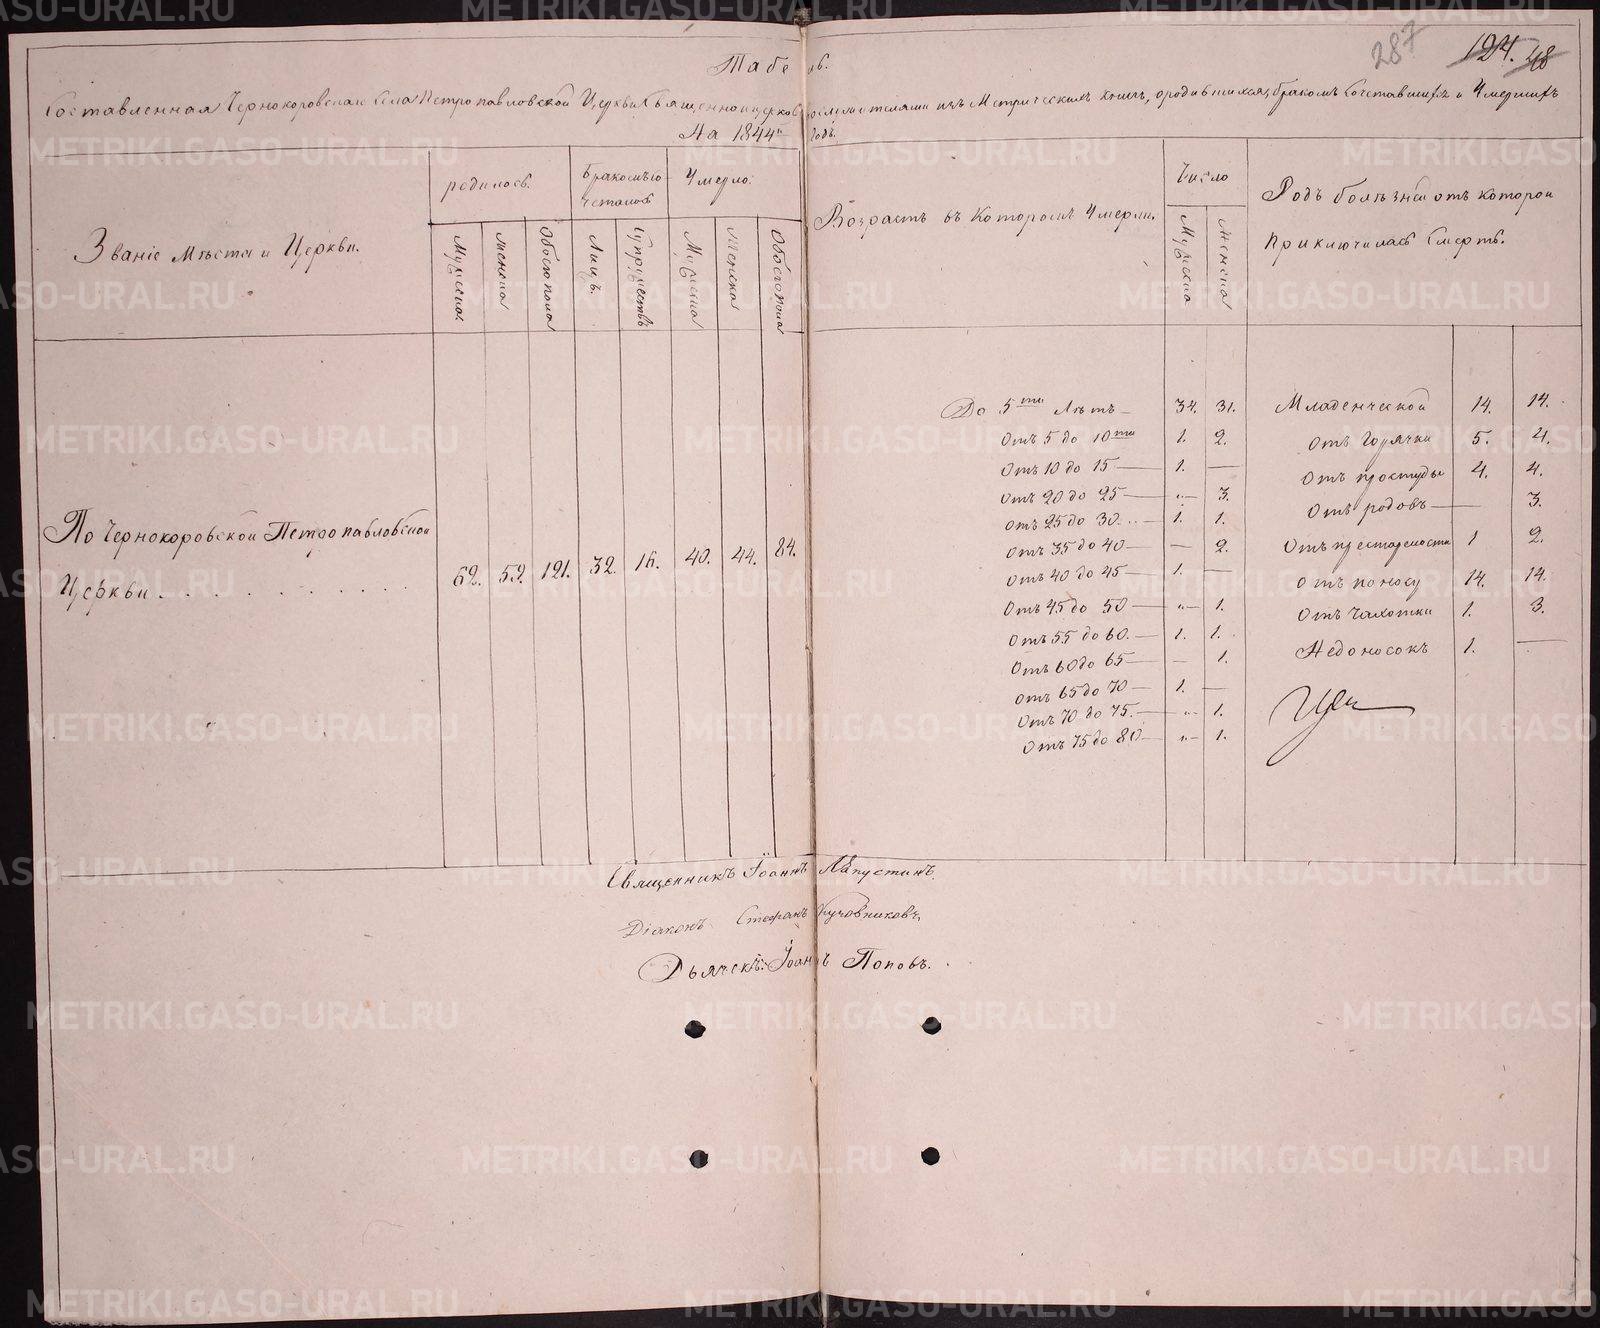 287
124. 48
Табель.
Составленная Чернокоровскаго Села Петропавловской Церкви Священноицерковнослужителями изъ Метрическихъ книгъ, ородившихся, бракомъ Сочетавшихъ и Умершихъ
На 1844й Годъ.
Званіе Мѣста и Церкви.
родилось.
Бракомъ сочеталось
Умерло.
Мужеска.
женска
Обоего пола
Лицъ.
Супружествъ
Мужеска
Женска
Обоего пола
Возрастъ въ Которомъ Умерли.
Число
Мужеска
Женска
Родъ болѣзни отъ которой приключилась Смерть.
По Чернокоровской Петропавловской
Церкви . . . . . . . . .
62. 59. 121. 32. 16. 40. 44. 84.
До 5ти Лѣтъ — 34. 31.
Отъ 5 до 10ти 1. 2.
Отъ 10 до 15 — 1. —
Отъ 20 до 25 — „— 3.
Отъ 25 до 30 — 1. 1.
Отъ 35 до 40 — — 2.
Отъ 40 до 45 — 1. —
Отъ 45 до 50 — „— 1.
Отъ 55 до 60. — 1. 1.
Отъ 60 до 65 — — 1.
Отъ 65 до 70 — 1. —
Отъ 70 до 75. — „— 1.
Отъ 75 до 80 — „— 1.
Младенческой 14. 14.
Отъ Горячки 5. 4.
Отъ простуды 4. 4.
Отъ родовъ — — 3.
Отъ престарелости 1 2.
Отъ поносу 14. 14.
Отъ Чахотки 1. 3.
Недоносокъ 1. —
Священникъ Іоаннъ Лапустинъ.
Діаконъ Стефанъ Кучовниковъ,
Дьячекъ Іоаннъ Поповъ.
METRIKI.GASO-URAL.RU